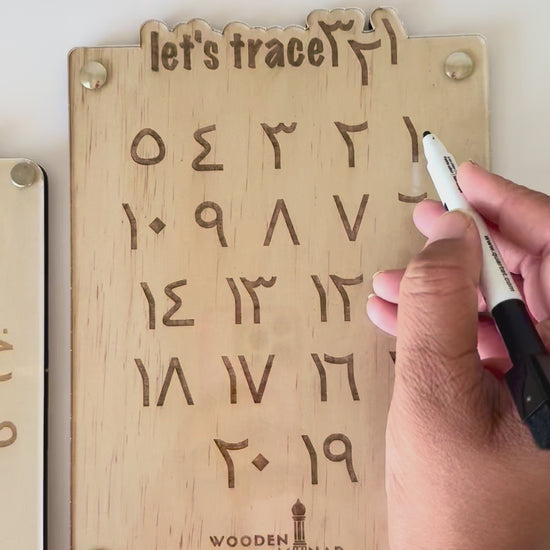 let's trace ٣٢١
١ ٢ ٣ ٤ ٥
٧ ٨ ٩ ١٠
١٢ ١٣ ١٤
١٦ ١٧ ١٨
١٩ ٢٠
WOODEN